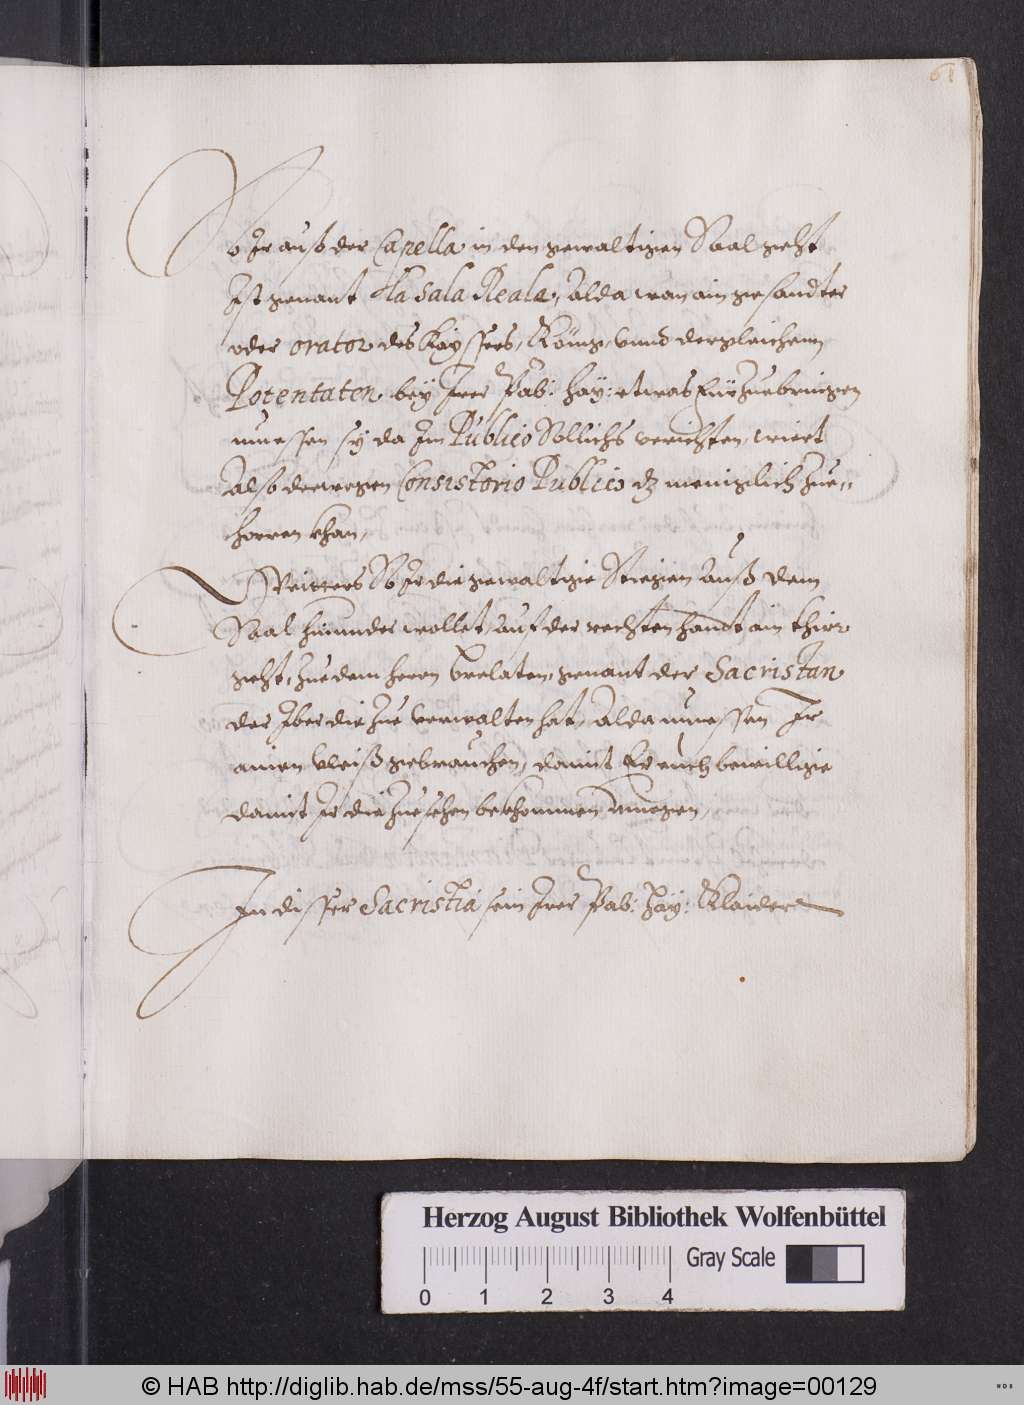 61
So Ir auß der Capella in den gewaltigen Saal geht
Ist genant Ala Sala Reala, Alda wan ain gesandter
oder orator des Kayssers, König, vnnd dergleichenn
Potentaten bey Irer Päb: Hay: etwas fürzuebringen
muessen sy da Im Publico Sollichs verichten, wiert
Also derwegen Consistorio Publico dz meniglich Zue„
horren khan,
Weitters So Ir die gewaltige Stiegen Auß dem
Saal hinunder wollet, auf der rechten handt ain thür
geht, zue dem herrn Prelaten, genant der Sacristan
der Iber die Zue verwalten hat, Alda muessen Ir
ainen vleiß gebrauchen, damit Er euch bewillige
damit Ir die Zuesehen bekhommen mugen,
In disser Sacristia sein Irer Päb: Häy: Klaider
Herzog August Bibliothek Wolfenbüttel
Gray Scale
0 1 2 3 4
© HAB http://diglib.hab.de/mss/55-aug-4f/start.htm?image=00129